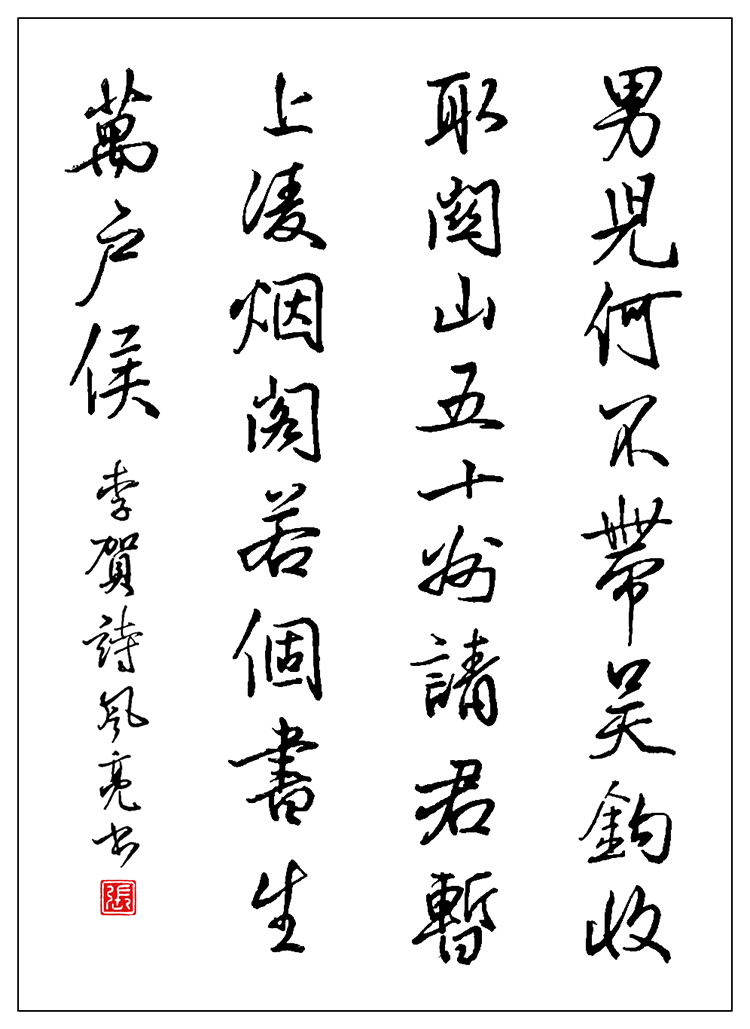 男児何不帶吴鈎收
取關山五十州請君暫
上凌烟阁若個書生
萬户侯
李賀詩風亮书
張